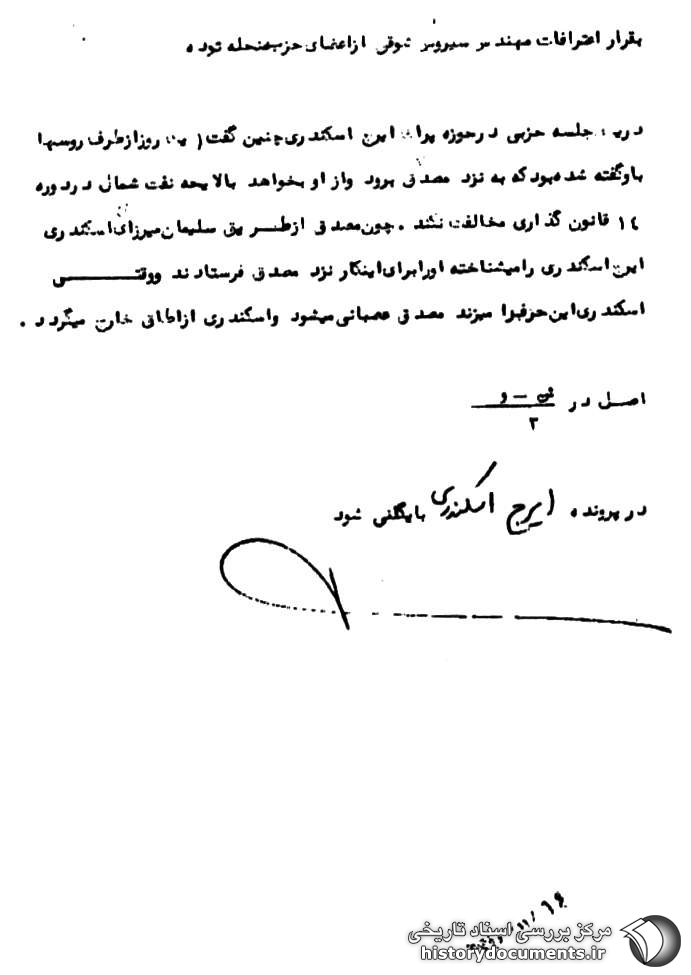 بقرار اعترافات مهندس سیروس ذوقی از اعضای حزب منحله توده
در یک جلسه حزبی در حوزه پراگ ایرج اسکندری چنین گفت ( یک روز از طرف روسها
باو گفته شده بود که به نزد مصدق برود و از او بخواهد با لایحه نفت شمال در دوره
۱۴ قانون گذاری مخالفت نکند . چون مصدق از طریق سلیمان میرزای اسکندری
ایرج اسکندری را میشناخته او را برای اینکار نزد مصدق فرستادند و وقتی
اسکندری این حرفها را میزند مصدق عصبانی میشود و اسکندری از اطاق خارج میگردد .
اصل در
۲
در پرونده ایرج اسکندری بایگانی شود
مرکز بررسی اسناد تاریخی
historydocuments.ir